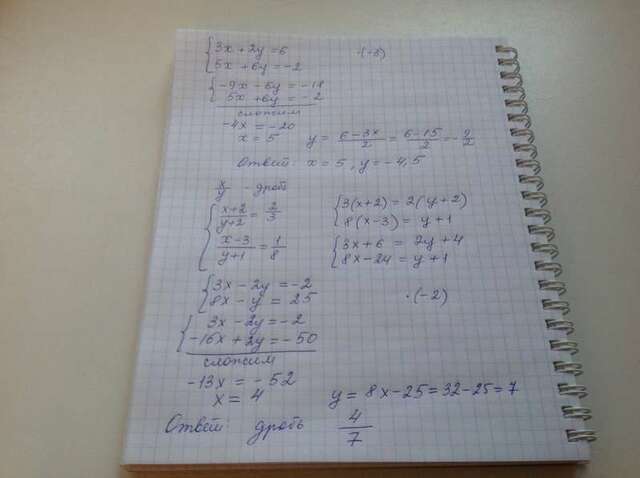 { 3x + 2y = 6 ·(-3)
5x + 6y = -2
{ -9x - 6y = -18
5x + 6y = -2
сложим
-4x = -20
x = 5 y = (6-3x)/2 = (6-15)/2 = -9/2
Ответ: x = 5, y = -4,5
x/y - дробь
{ (x+2)/(y+2) = 2/3 { 3(x+2) = 2(y+2)
8(x-3) = y+1
(x-3)/(y+1) = 1/8 { 3x+6 = 2y+4
8x-24 = y+1
{ 3x - 2y = -2
8x - y = 25 ·(-2)
{ 3x - 2y = -2
-16x + 2y = -50
сложим
-13x = -52
x = 4 y = 8x-25 = 32-25 = 7
Ответ: дробь 4/7